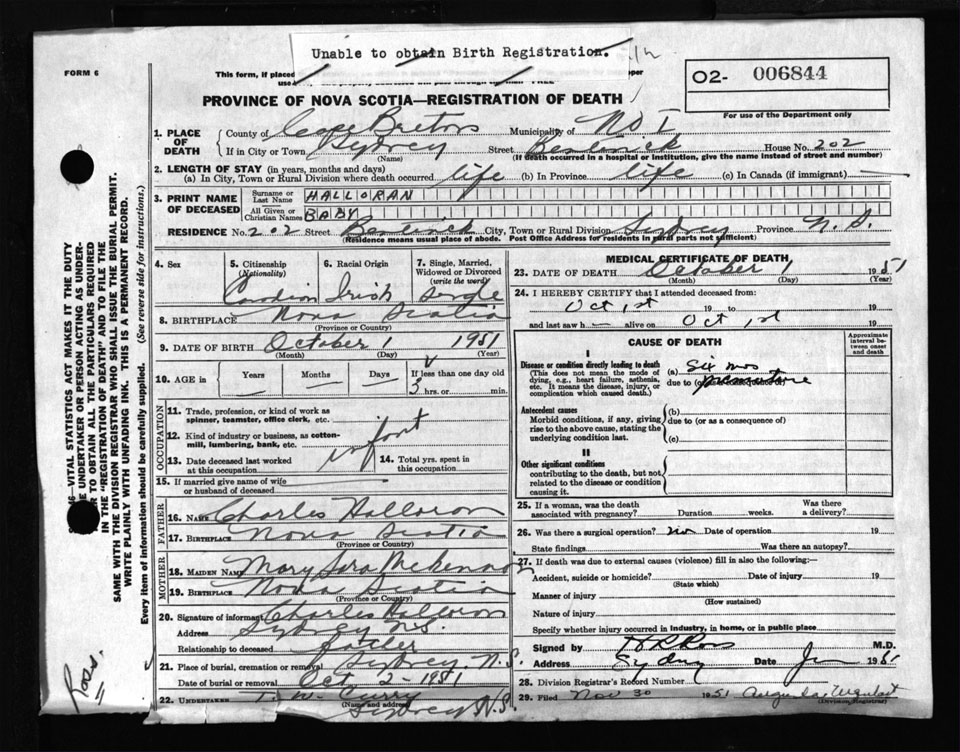 Unable to obtain Birth Registration.
FORM 6
This form, if placed
O2- 006844
For use of the Department only
PROVINCE OF NOVA SCOTIA—REGISTRATION OF DEATH
1. PLACE OF DEATH
County of Cape Breton Municipality of No 1
If in City or Town Sydney Street House No. 202
(Name) (If death occurred in a hospital or institution, give the name instead of street and number)
2. LENGTH OF STAY (in years, months and days)
(a) In City, Town or Rural Division where death occurred life (b) In Province life (c) In Canada (if immigrant)
3. PRINT NAME OF DECEASED
Surname or Last Name HALLORAN
All Given or Christian Names BABY
RESIDENCE No. 202 Street City, Town or Rural Division Sydney Province N.S.
(Residence means usual place of abode. Post Office Address for residents in rural parts not sufficient)
4. Sex
5. Citizenship (Nationality) Canadian
6. Racial Origin Irish
7. Single, Married, Widowed or Divorced (write the word) Single
8. BIRTHPLACE Nova Scotia
(Province or Country)
9. DATE OF BIRTH October 1 1951
(Month) (Day) (Year)
10. AGE in Years Months Days If less than one day old
3 hrs. or min.
OCCUPATION
11. Trade, profession, or kind of work as spinner, teamster, office clerk, etc.
12. Kind of industry or business, as cotton-mill, lumbering, bank, etc. infant
13. Date deceased last worked at this occupation
14. Total yrs. spent in this occupation
15. If married give name of wife or husband of deceased
FATHER
16. NAME Charles Halloran
17. BIRTHPLACE Nova Scotia
(Province or Country)
MOTHER
18. MAIDEN NAME Mary Sara McKinnon
19. BIRTHPLACE Nova Scotia
(Province or Country)
20. Signature of informant Charles Halloran
Address Sydney N.S.
Relationship to deceased Father
21. Place of burial, cremation or removal Sydney, N.S.
Date of burial or removal Oct 2 - 1951
22. UNDERTAKER T. W. Curry
(Name and address) Sydney N.S.
MEDICAL CERTIFICATE OF DEATH
23. DATE OF DEATH October 1 1951
(Month) (Day) (Year)
24. I HEREBY CERTIFY that I attended deceased from:
Oct 1st 19 to 19
and last saw h— alive on Oct 1st 19
CAUSE OF DEATH
Approximate interval between onset and death
I
Disease or condition directly leading to death
(This does not mean the mode of dying, e.g., heart failure, asthenia, etc. It means the disease, injury, or complication which caused death.)
(a) Six mos
due to premature
Antecedent causes
Morbid conditions, if any, giving rise to the above cause, stating the underlying condition last.
(b)
due to (or as a consequence of)
(c)
II
Other significant conditions
contributing to the death, but not related to the disease or condition causing it.
25. If a woman, was the death associated with pregnancy? Duration weeks. Was there a delivery?
26. Was there a surgical operation? no Date of operation 19
State findings Was there an autopsy?
27. If death was due to external causes (violence) fill in also the following:—
Accident, suicide or homicide? Date of injury 19
(State which)
Manner of injury
(How sustained)
Nature of injury
Specify whether injury occurred in industry, in home, or in public place
Signed by M.D.
Address Sydney Date 1951
28. Division Registrar's Record Number
29. Filed Nov 30 1951
(Division Registrar)
VITAL STATISTICS ACT MAKES IT THE DUTY
UNDERTAKER OR PERSON ACTING AS UNDER-
TO OBTAIN ALL THE PARTICULARS REQUIRED
IN THE "REGISTRATION OF DEATH" AND TO FILE THE
SAME WITH THE DIVISION REGISTRAR WHO SHALL ISSUE THE BURIAL PERMIT.
WRITE PLAINLY WITH UNFADING INK. THIS IS A PERMANENT RECORD.
Every item of information should be carefully supplied. (See reverse side for instructions.)
Ross.